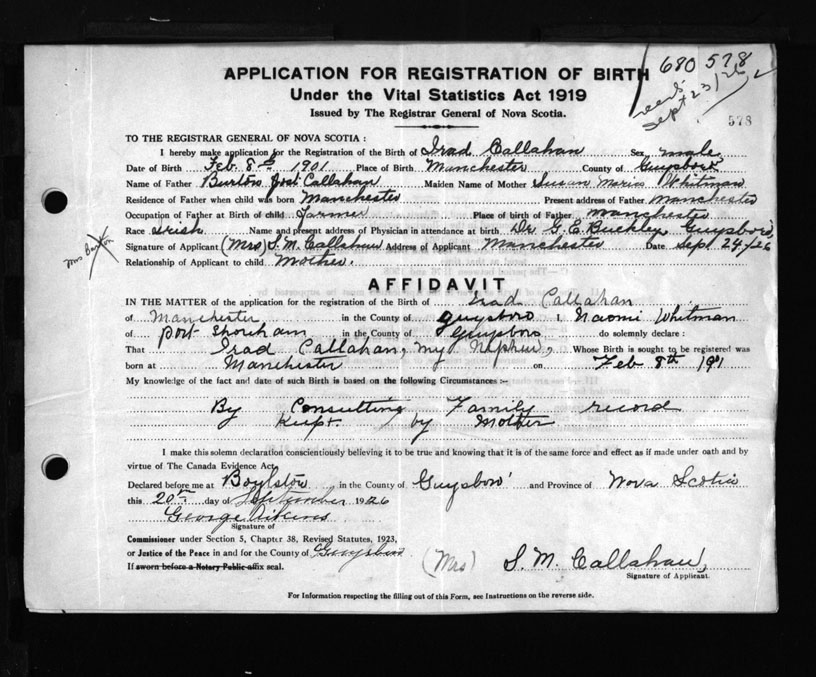 680 578
APPLICATION FOR REGISTRATION OF BIRTH
Under the Vital Statistics Act 1919
Sept 23/26
Issued by The Registrar General of Nova Scotia.
578
TO THE REGISTRAR GENERAL OF NOVA SCOTIA :
I hereby make application for the Registration of the Birth of Irad Callahan Sex male
Date of Birth Feb 8th 1901 Place of Birth Manchester County of Guysboro
Name of Father Burton Callahan Maiden Name of Mother Susan Maria Whitman
Residence of Father when child was born Manchester Present address of Father Manchester
Occupation of Father at Birth of child farmer Place of birth of Father Manchester
Race Irish Name and present address of Physician in attendance at birth Dr G. E. Buckley Guysboro
Mrs Burton
Signature of Applicant (Mrs) S. M. Callahan Address of Applicant Manchester Date Sept 24/26
Relationship of Applicant to child Mother.
AFFIDAVIT
IN THE MATTER of the application for the registration of the Birth of Irad Callahan
of Manchester in the County of Guysboro I, Naomi Whitman
of Port Shoreham in the County of Guysboro do solemnly declare :
That Irad Callahan, my Nephew, Whose Birth is sought to be registered was
born at Manchester on Feb 8th 191
My knowledge of the fact and date of such Birth is based on the following Circumstances :-
By Consulting Family record
Kept by Mother
I make this solemn declaration conscientiously believing it to be true and knowing that it is of the same force and effect as if made under oath and by
virtue of The Canada Evidence Act,
Declared before me at Boylston in the County of Guysboro and Province of Nova Scotia
this 20th day of September 1926
George Aikens
Signature of
Commissioner under Section 5, Chapter 38, Revised Statutes, 1923,
or Justice of the Peace in and for the County of Guysboro
(Mrs) S. M. Callahan,
If sworn before a Notary Public affix seal.
Signature of Applicant.
For Information respecting the filling out of this Form, see Instructions on the reverse side.